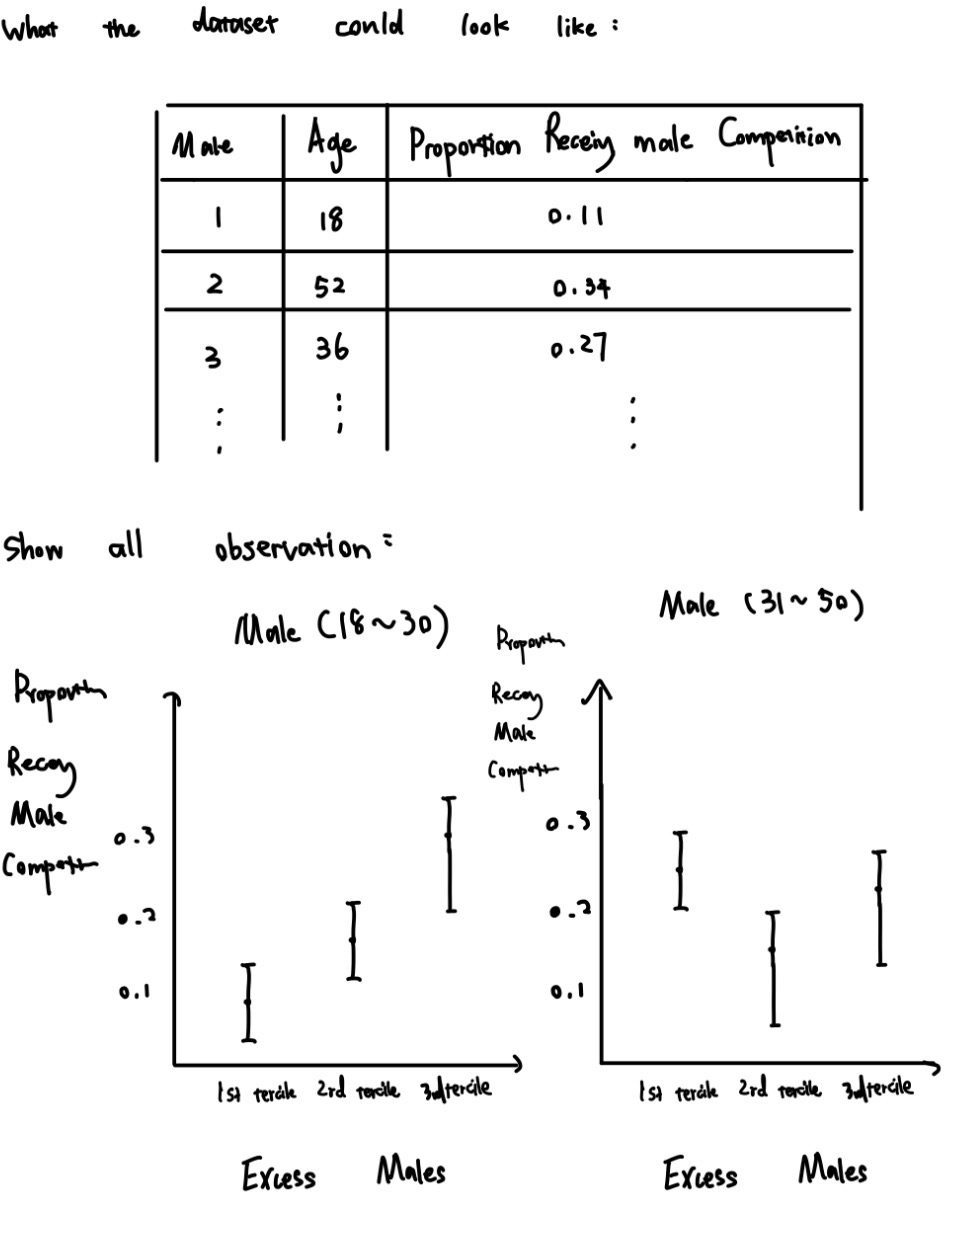 What the dataset could look like:
Male Age Proportion Receiving male Competition
1 18 0.11
2 52 0.34
3 36 0.27
Show all observation:
Male (18~30)
Male (31~50)
Proportion
Male
0.3
0.2
0.1
1st tercile 2rd tercile 3rd tercile
Excess Males
Proportion
Male
0.3
0.2
0.1
1st tercile 2rd tercile 3rd tercile
Excess Males